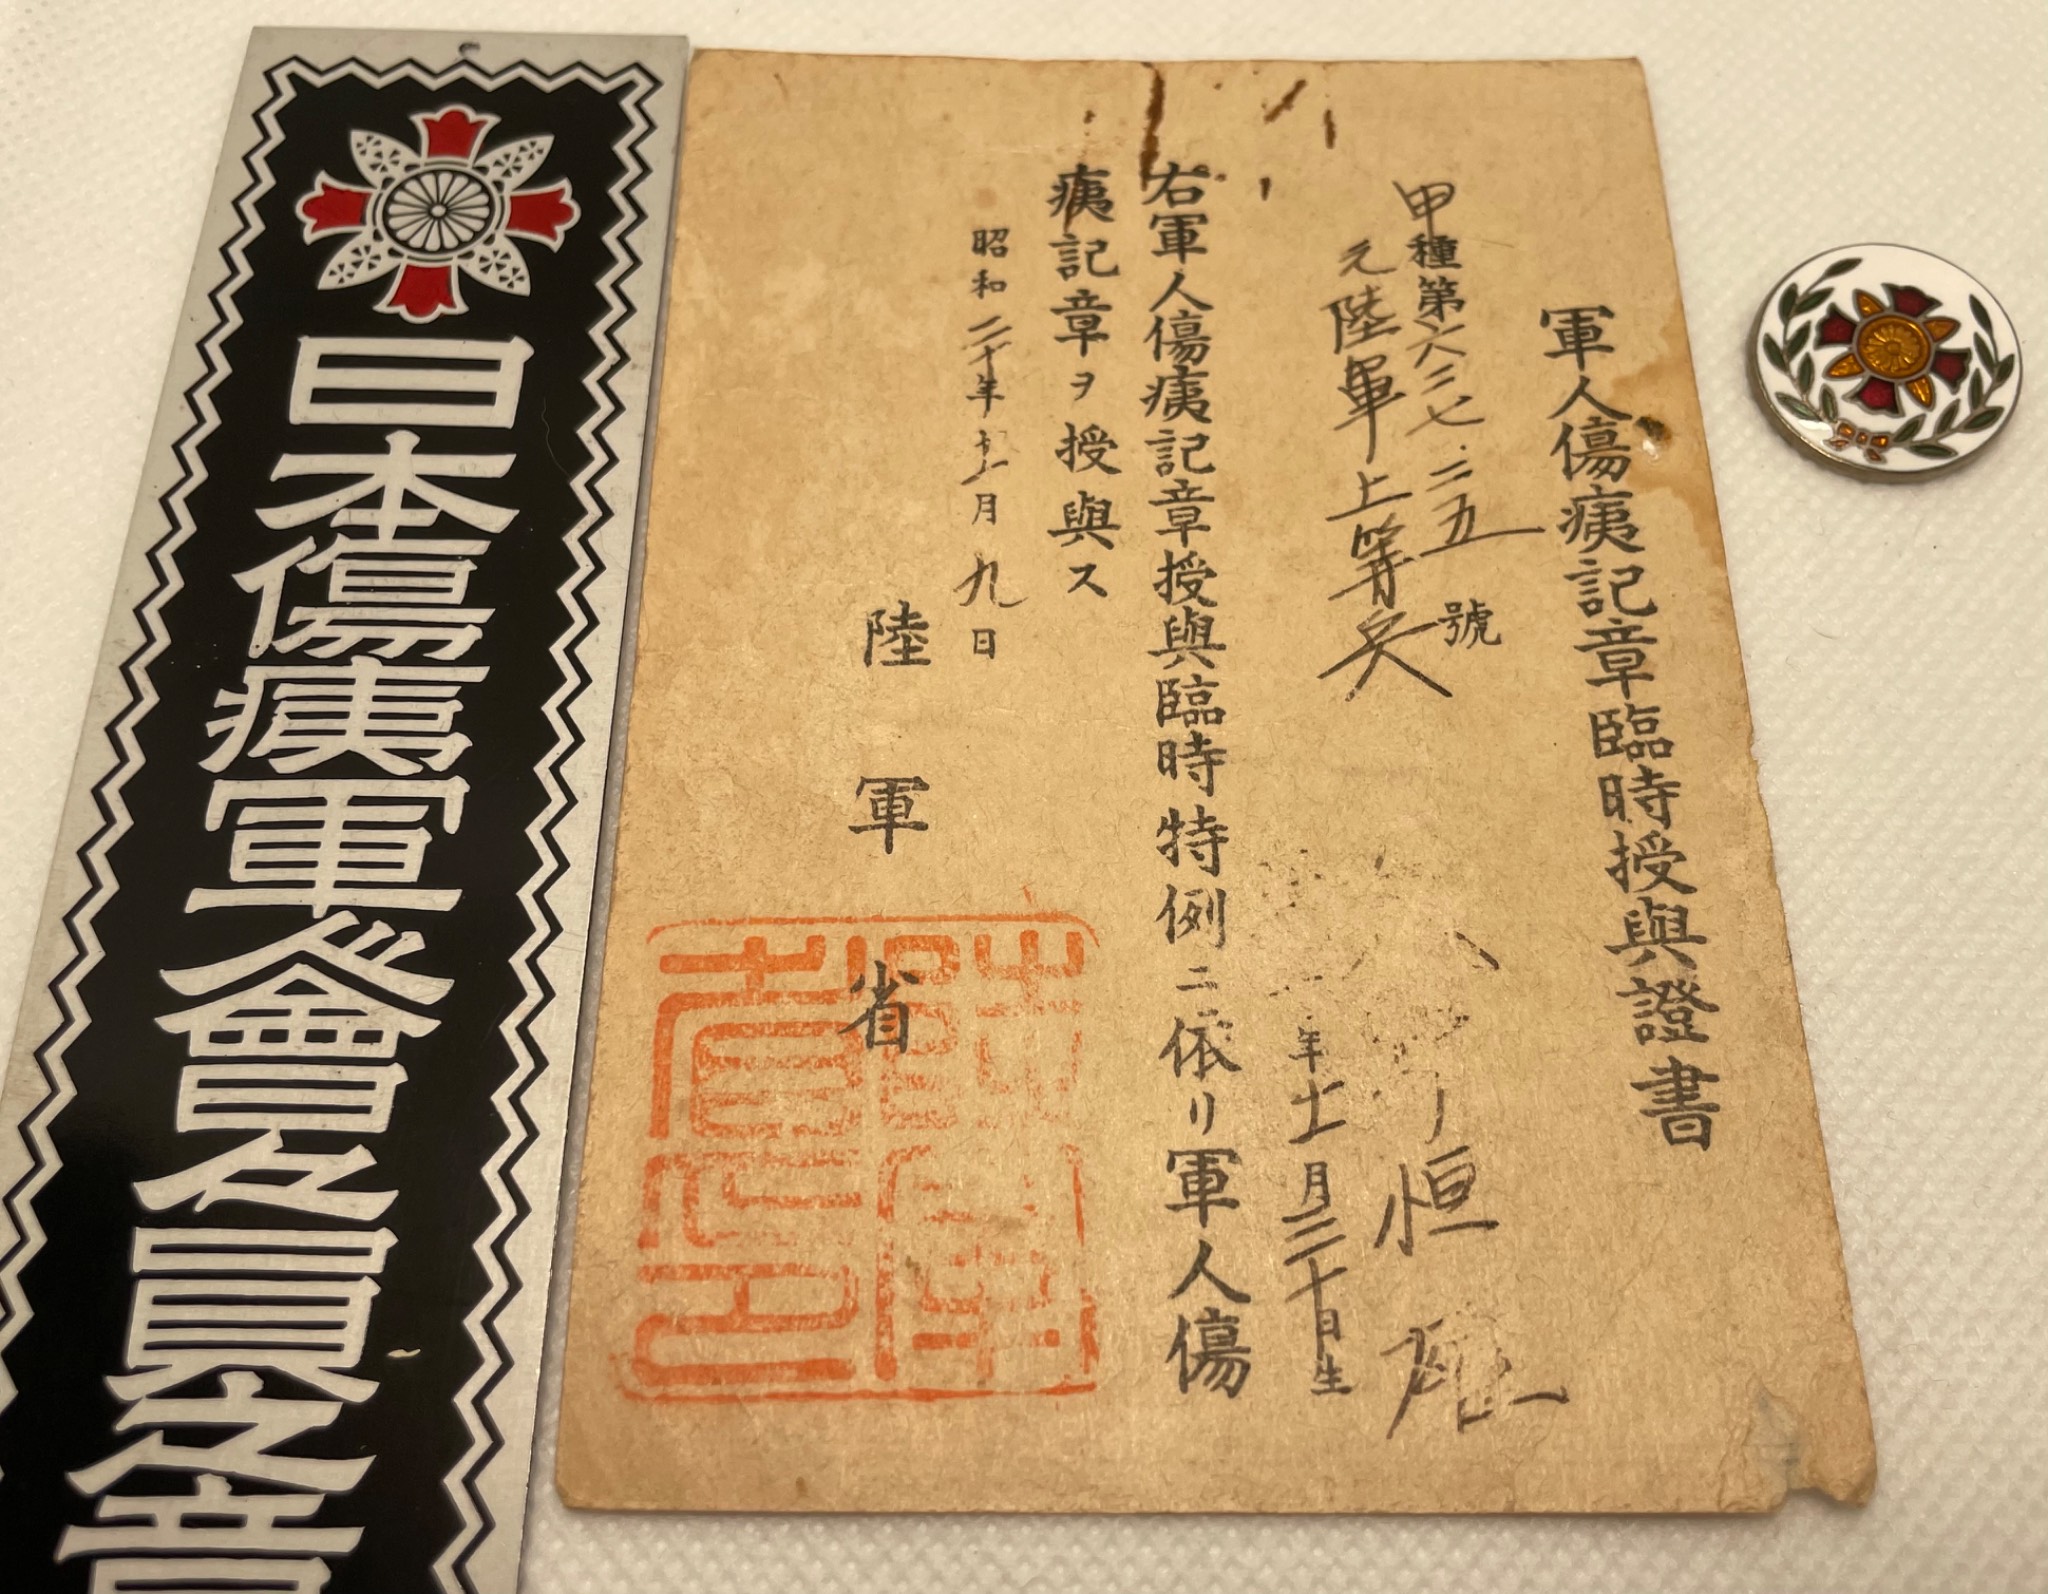 軍人傷痍記章臨時授與證書
甲種第六二七二五號
元陸軍上等兵
恒
年十一月三十日生
右軍人傷痍記章授與臨時特例ニ依リ軍人傷
痍記章ヲ授與ス
昭和二十年十一月九日
陸軍省
陸軍省之印
日本傷痍軍人會々員之章